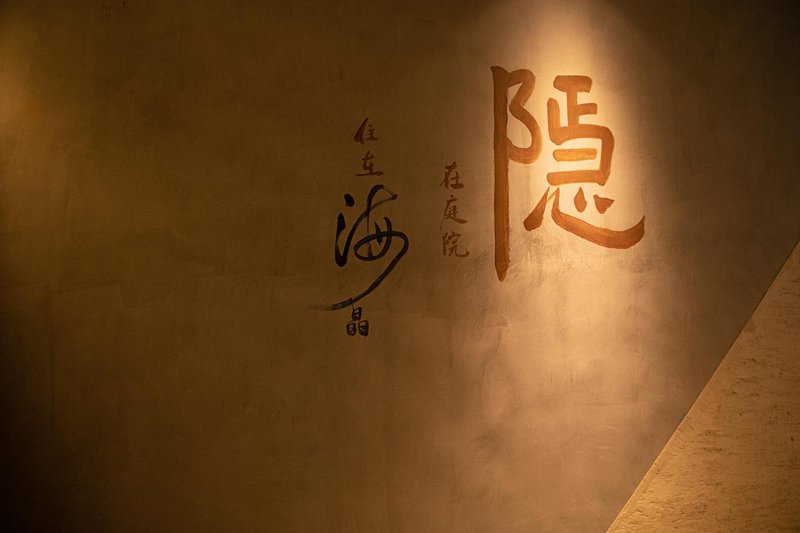 隐
在庭院
住在海晶